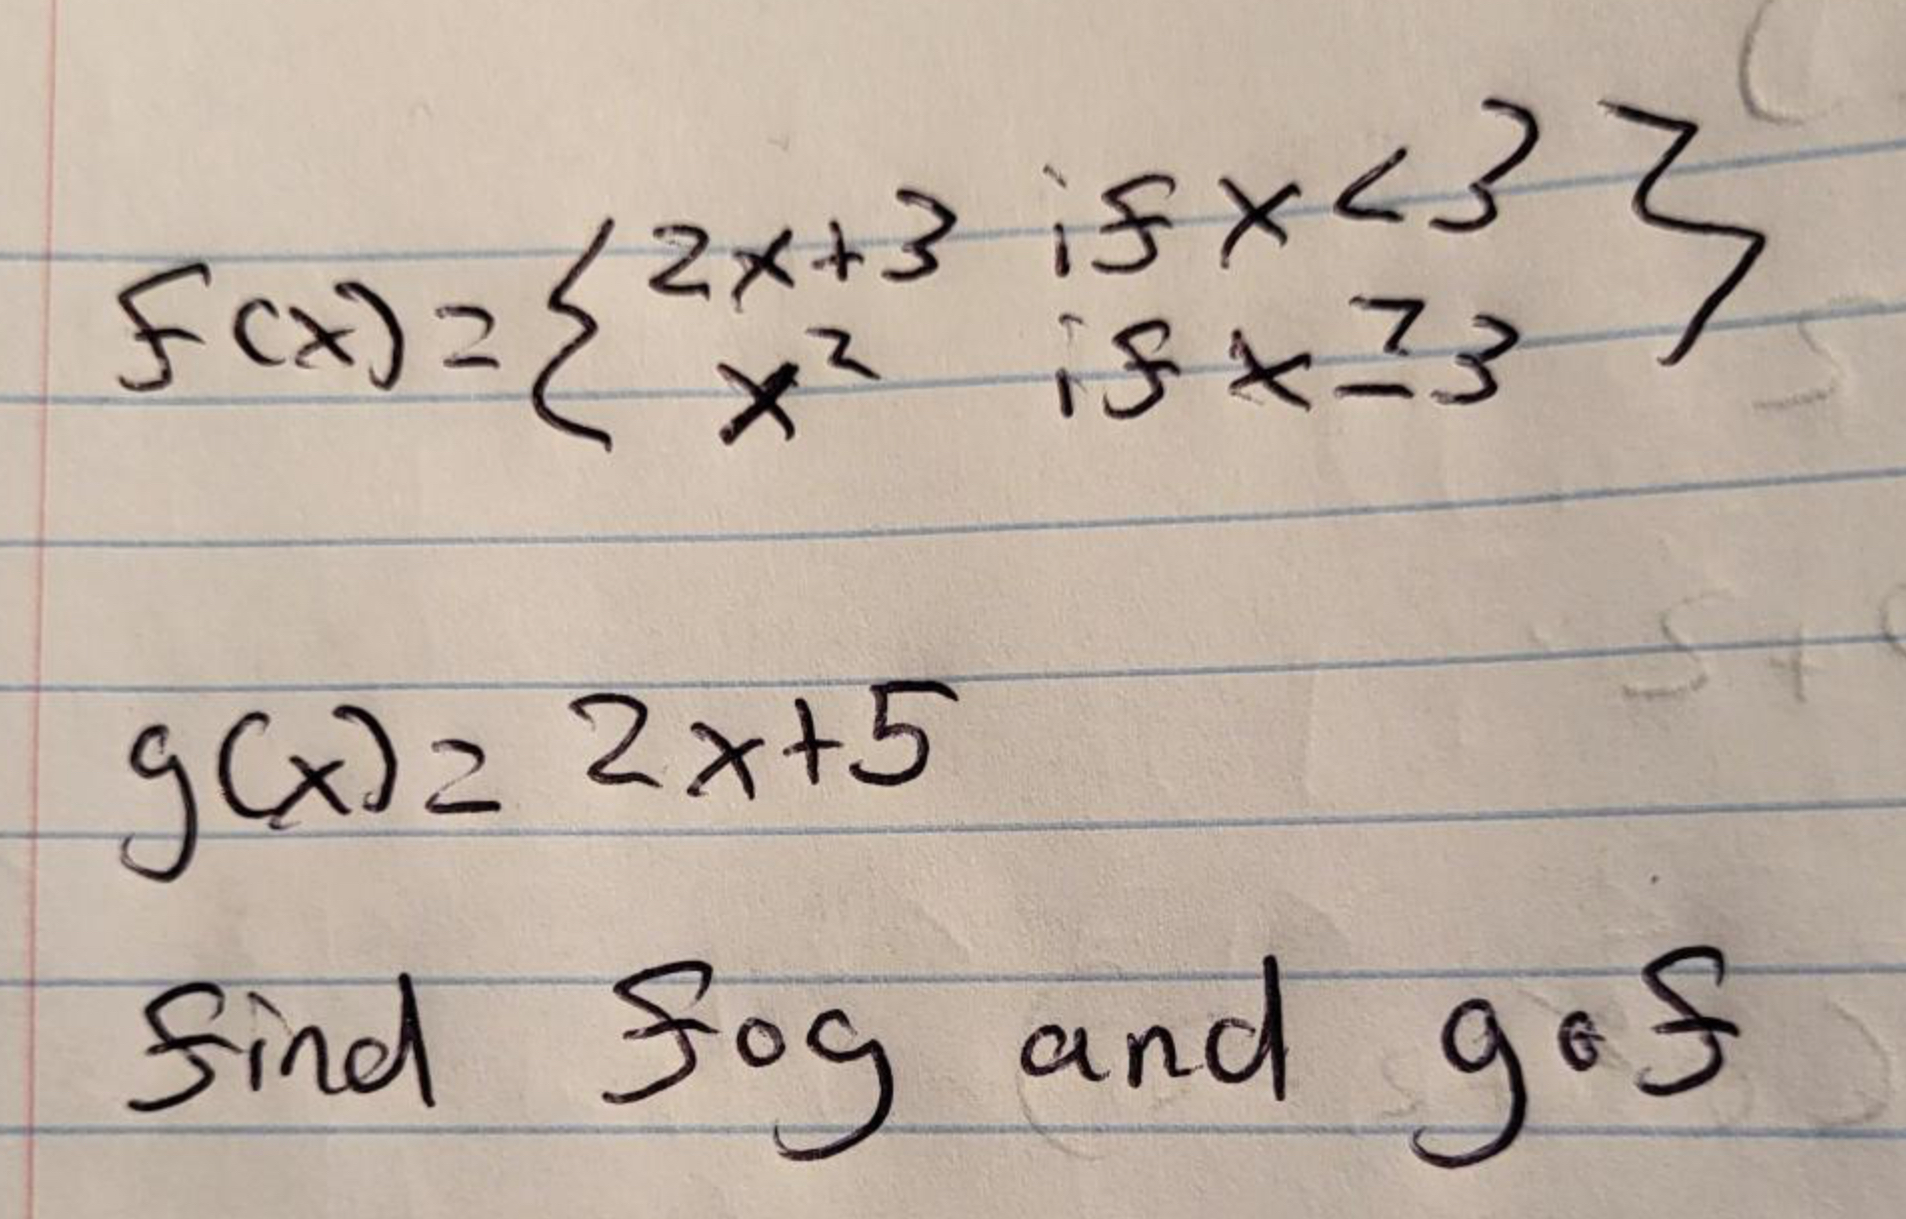 f(x) = { 2x+3 if x < 3 }
x² if x ≥ 3
g(x) = 2x+5
find fog and gof